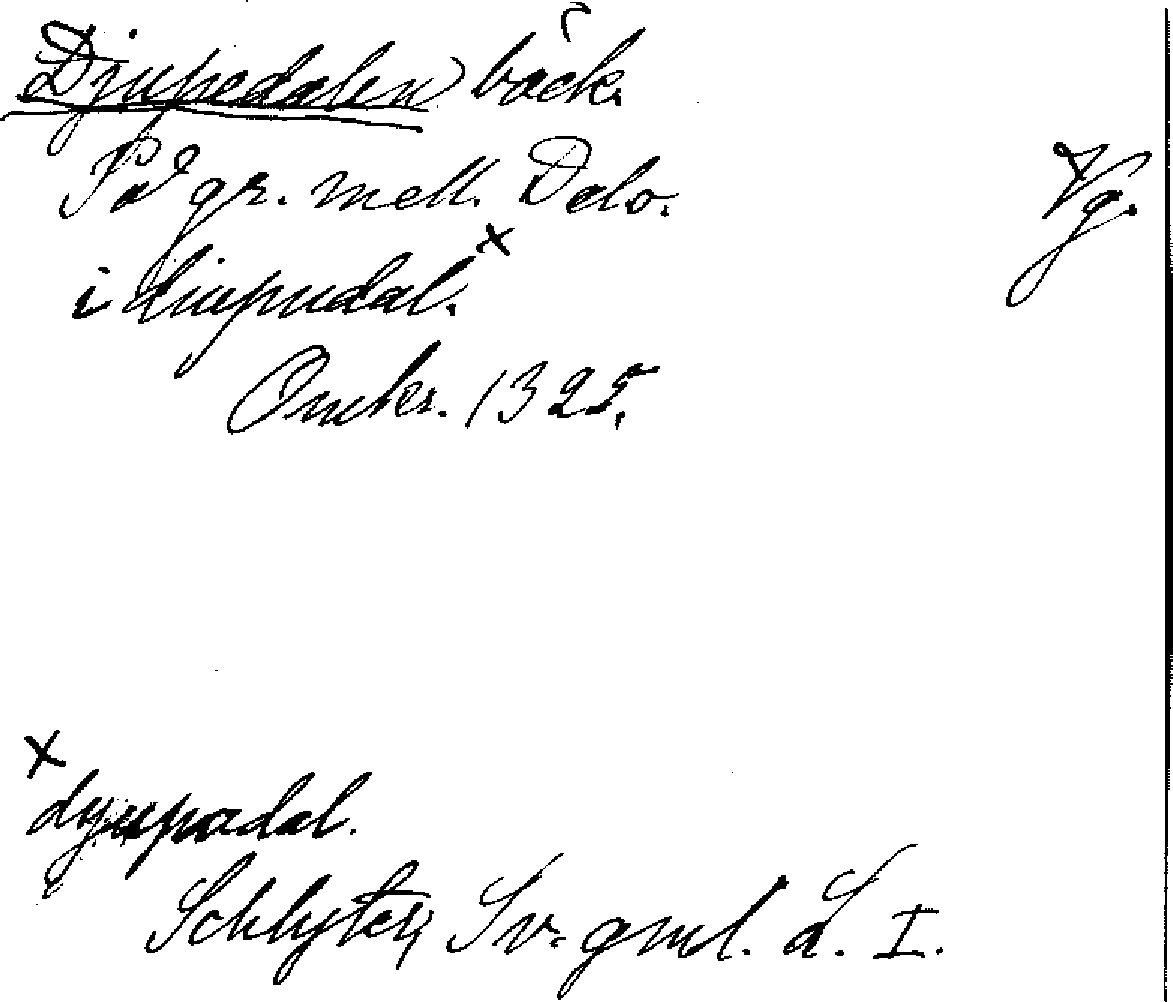 Djupedalen bäck.
På gr. mell. Dalo. Vg.
i diupudal. x
Omkr. 1325.
x
dyupadal.
Schlyter, Sv. gml. L. I.